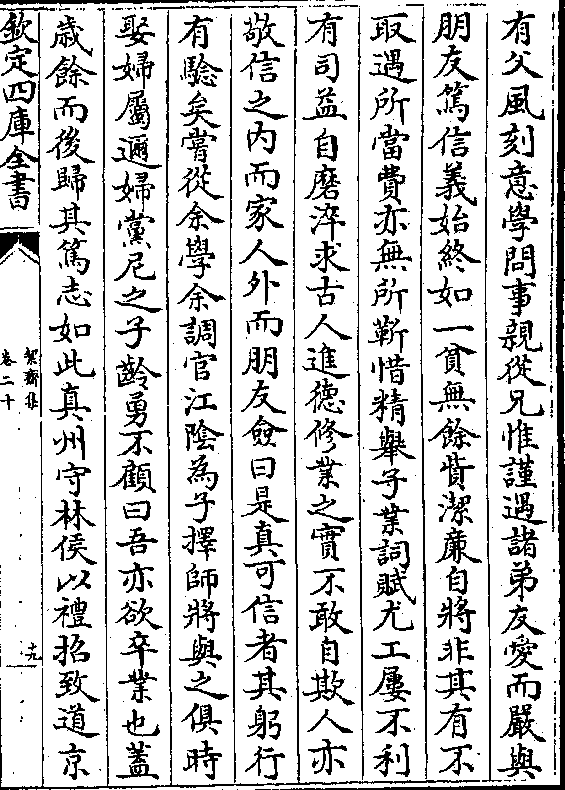 有父風刻意學問事親從兄惟謹遇諸弟友愛而嚴與
朋友篤信義始終如一貧無餘貲潔廉自將非其有不
取遇所當費亦無所靳惜精舉子業詞賦尤工屢不利
有司益自磨淬求古人進徳修業之實不敢自欺人亦
敬信之内而家人外而朋友僉曰是真可信者其躬行
有驗矣嘗從余學余調官江陰為子擇師將與之俱時
娶婦屬邇婦黨尼之子齡勇不顧曰吾亦欲卒業也蓋
歳餘而後歸其篤志如此真州守林侯以禮招致道京
欽定四庫全書
絜齋集
卷二十
十九